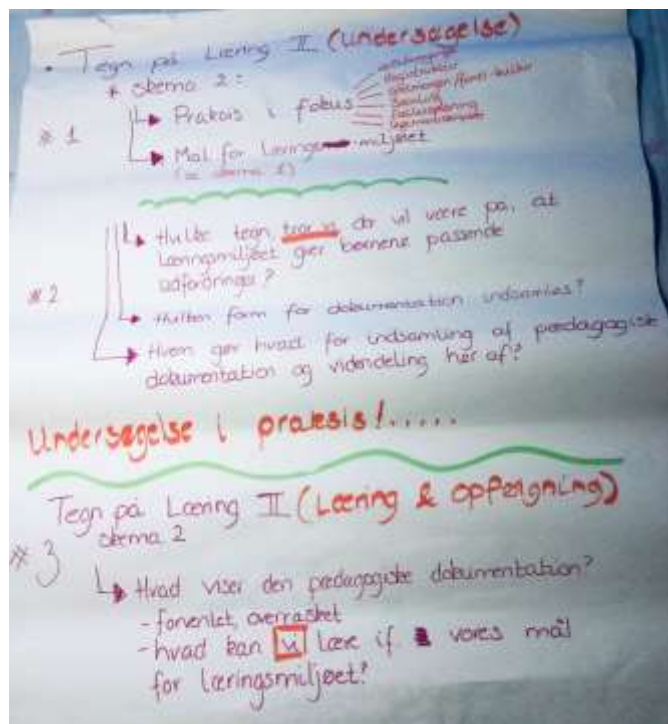 • Tegn på Læring II (undersøgelse)
+ skema 2:
* 1
↳ Praksis i fokus
↳ Mål for lærings miljøet
(= skema 1)
* 2
↳ Hvilke tegn tror vi der vil være på, at
læringsmiljøet giver børnene passende
udfordringer?
↳ Hvilken form for dokumentation indsamles?
↳ Hvem gør hvad for indsamling af pædagogisk
dokumentation og videndeling her af?
Undersøgelse i praksis!.....
Tegn på Læring II (Læring & opfølgning)
skema 2
* 3
↳ Hvad viser den pædagogiske dokumentation?
- forventet, overrasket
- hvad kan vi lære if. vores mål
for læringsmiljøet?